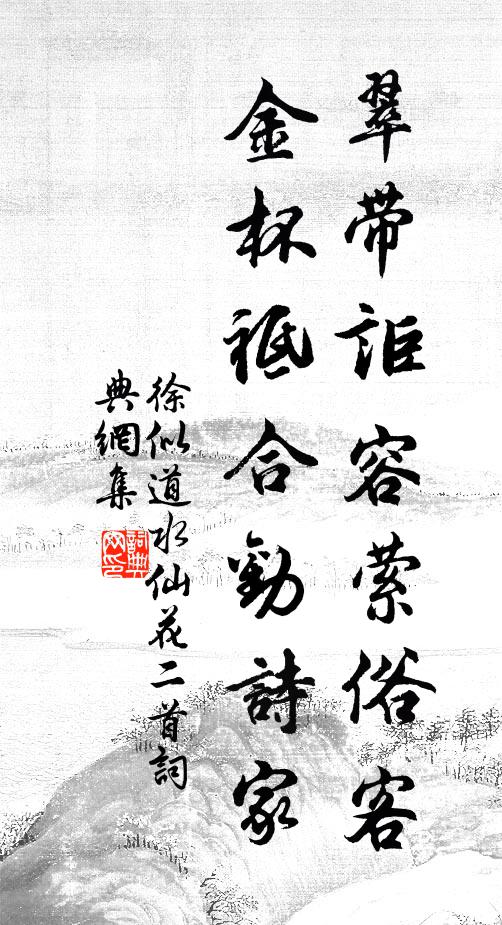 翠帶詎容縈俗客
金杯祗合勸詩家
徐似道水仙花二首詞
典網集
詞典
網印